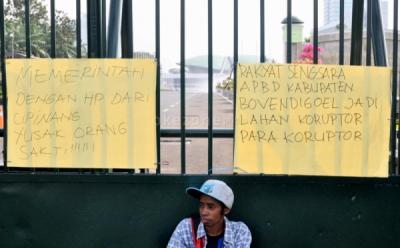 MEMERINTAH
DENGAN HP DARI
CIPINANG
YUSAK ORANG
SAKTI!!!!!!
RAKYAT SENGSARA
APBD KABUPATEN
BOVENDIGOEL JADI
LAHAN KORUPTOR
PARA KORUPTOR